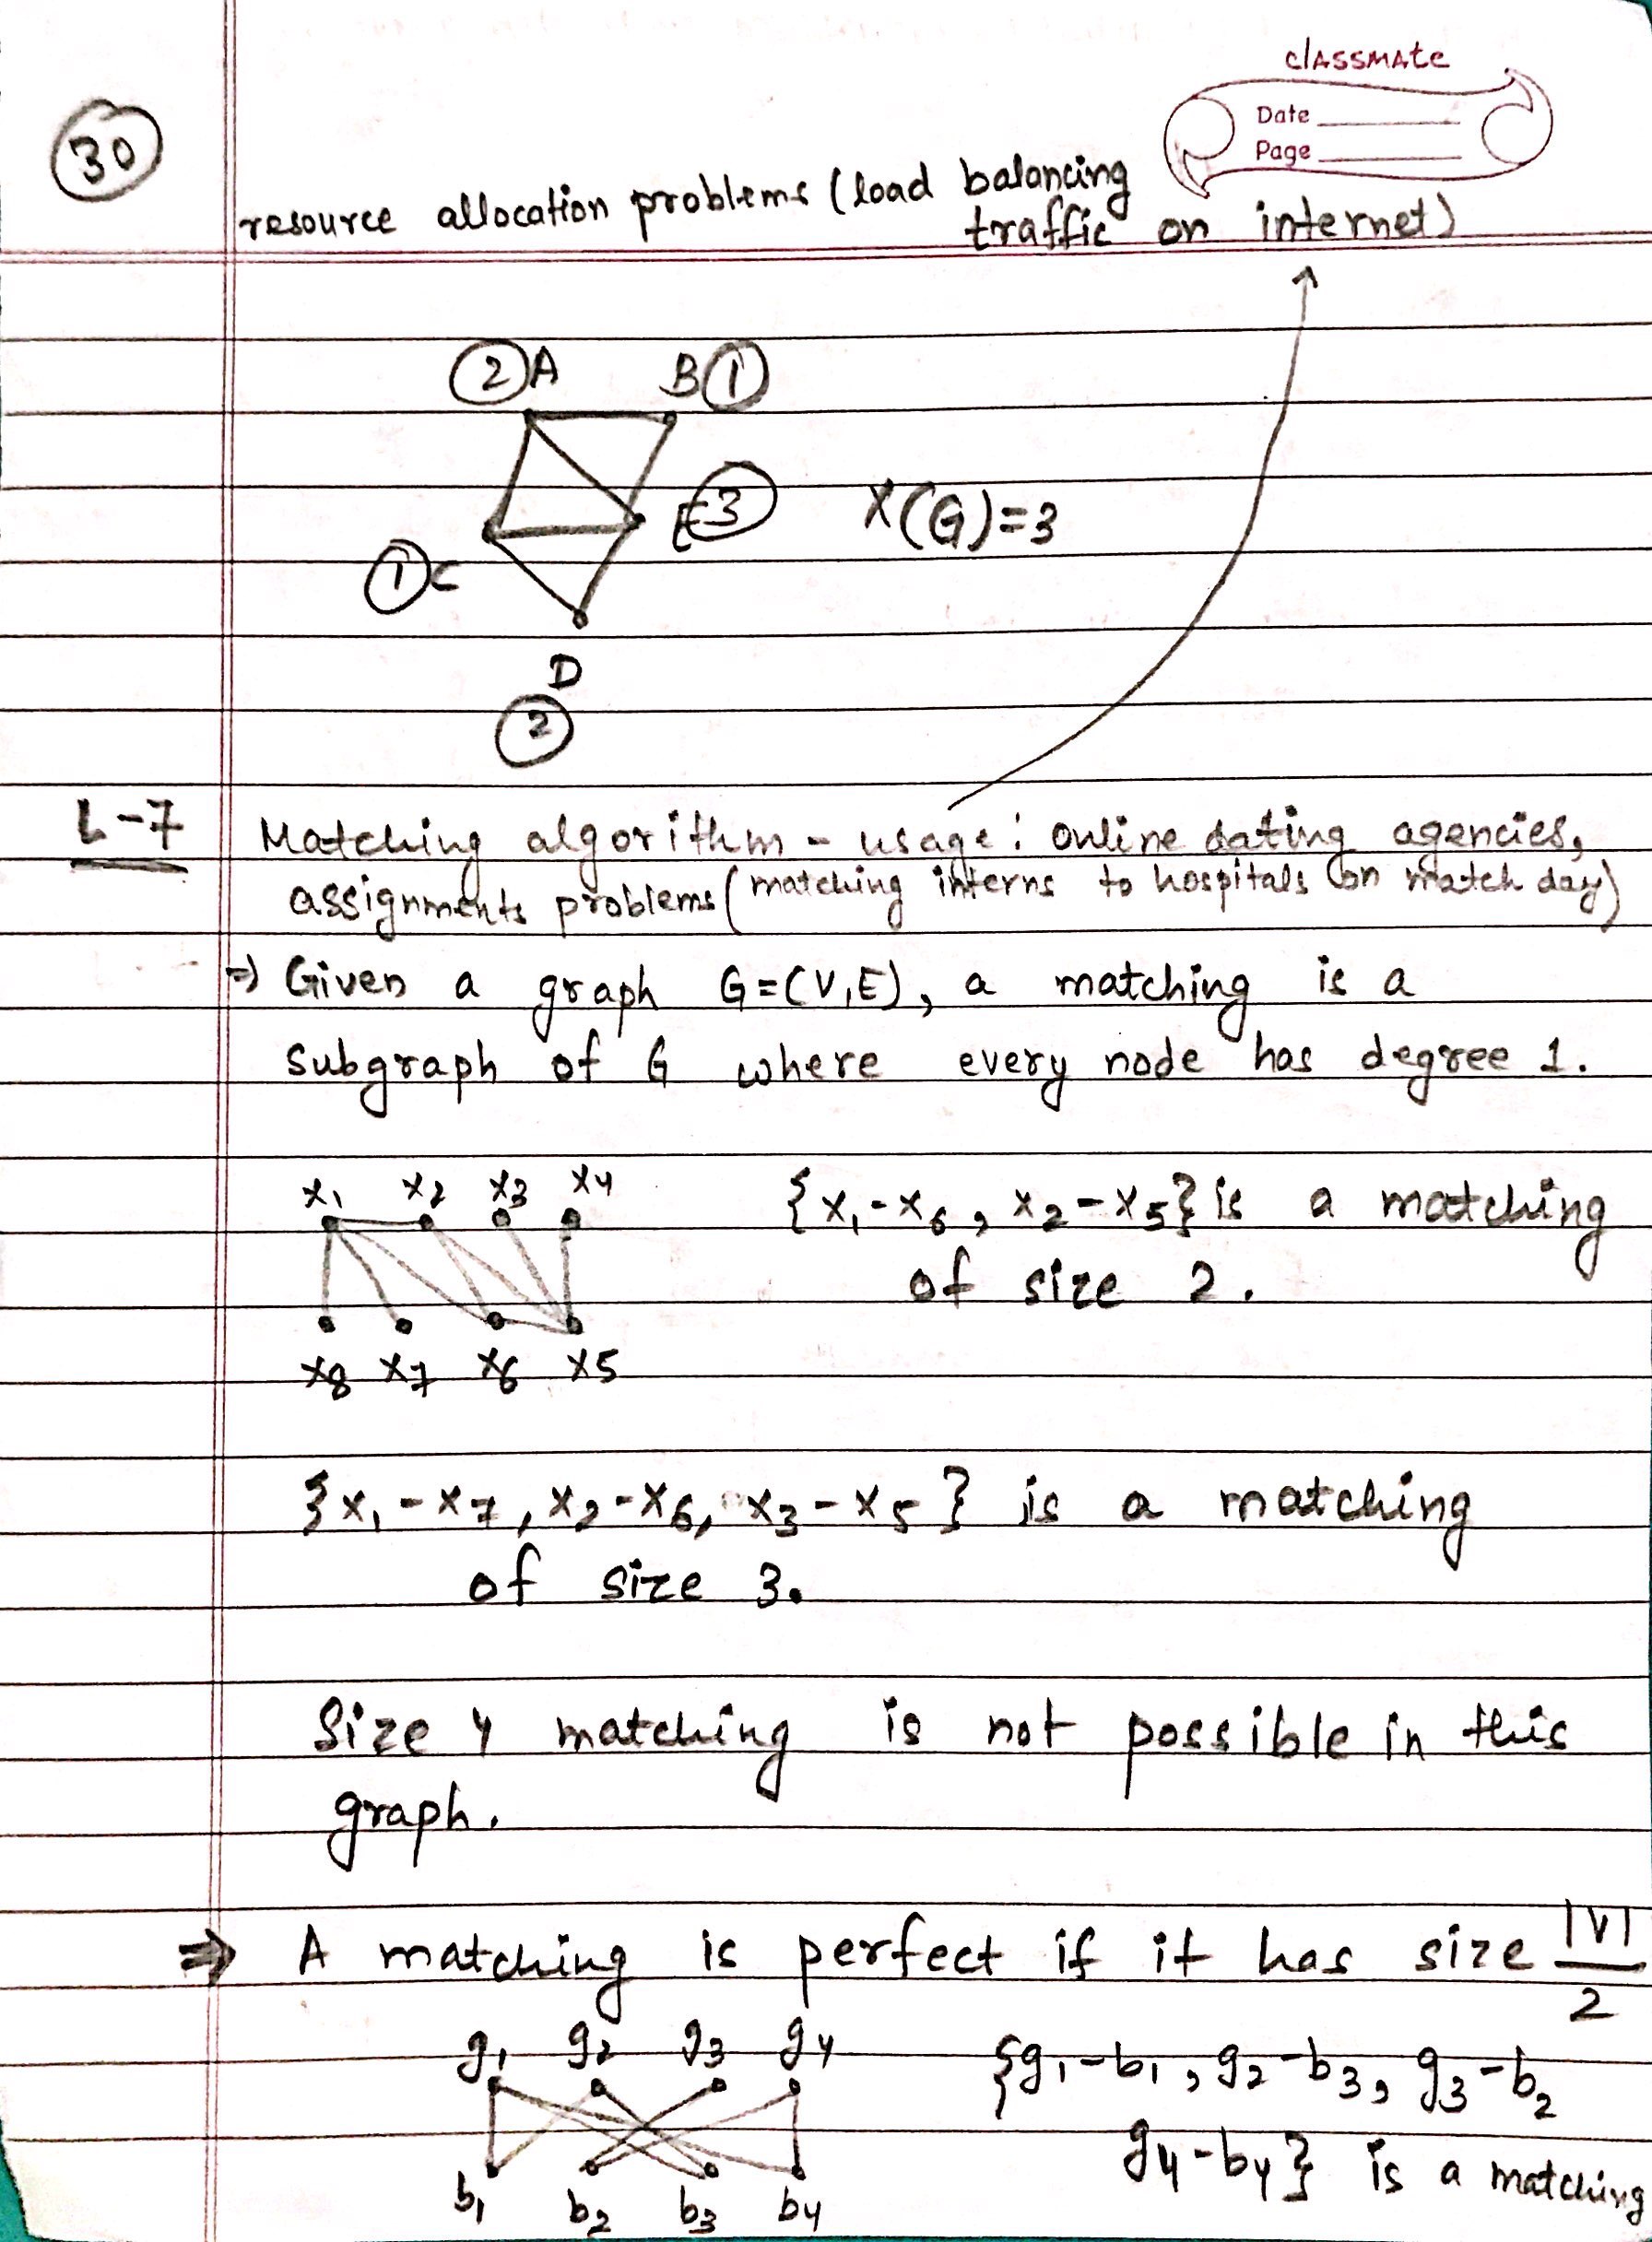 classmate
Date
Page
30
resource allocation problems (load balancing
traffic on internet)
2 A B 1
E 3 X(G)=3
1 C
D
2
L-7 Matching algorithm - usage: online dating agencies,
assignments problems (matching interns to hospitals on match day)
=> Given a graph G=(V,E), a matching is a
subgraph of G where every node has degree 1.
x1 x2 x3 x4 {x1-x6, x2-x5} is a matching
of size 2.
x8 x7 x6 x5
{x1-x7, x2-x6, x3-x5} is a matching
of size 3.
Size 4 matching is not possible in this
graph.
=> A matching is perfect if it has size |V|/2
g1 g2 g3 g4 {g1-b1, g2-b3, g3-b2
g4-b4} is a matching
b1 b2 b3 b4